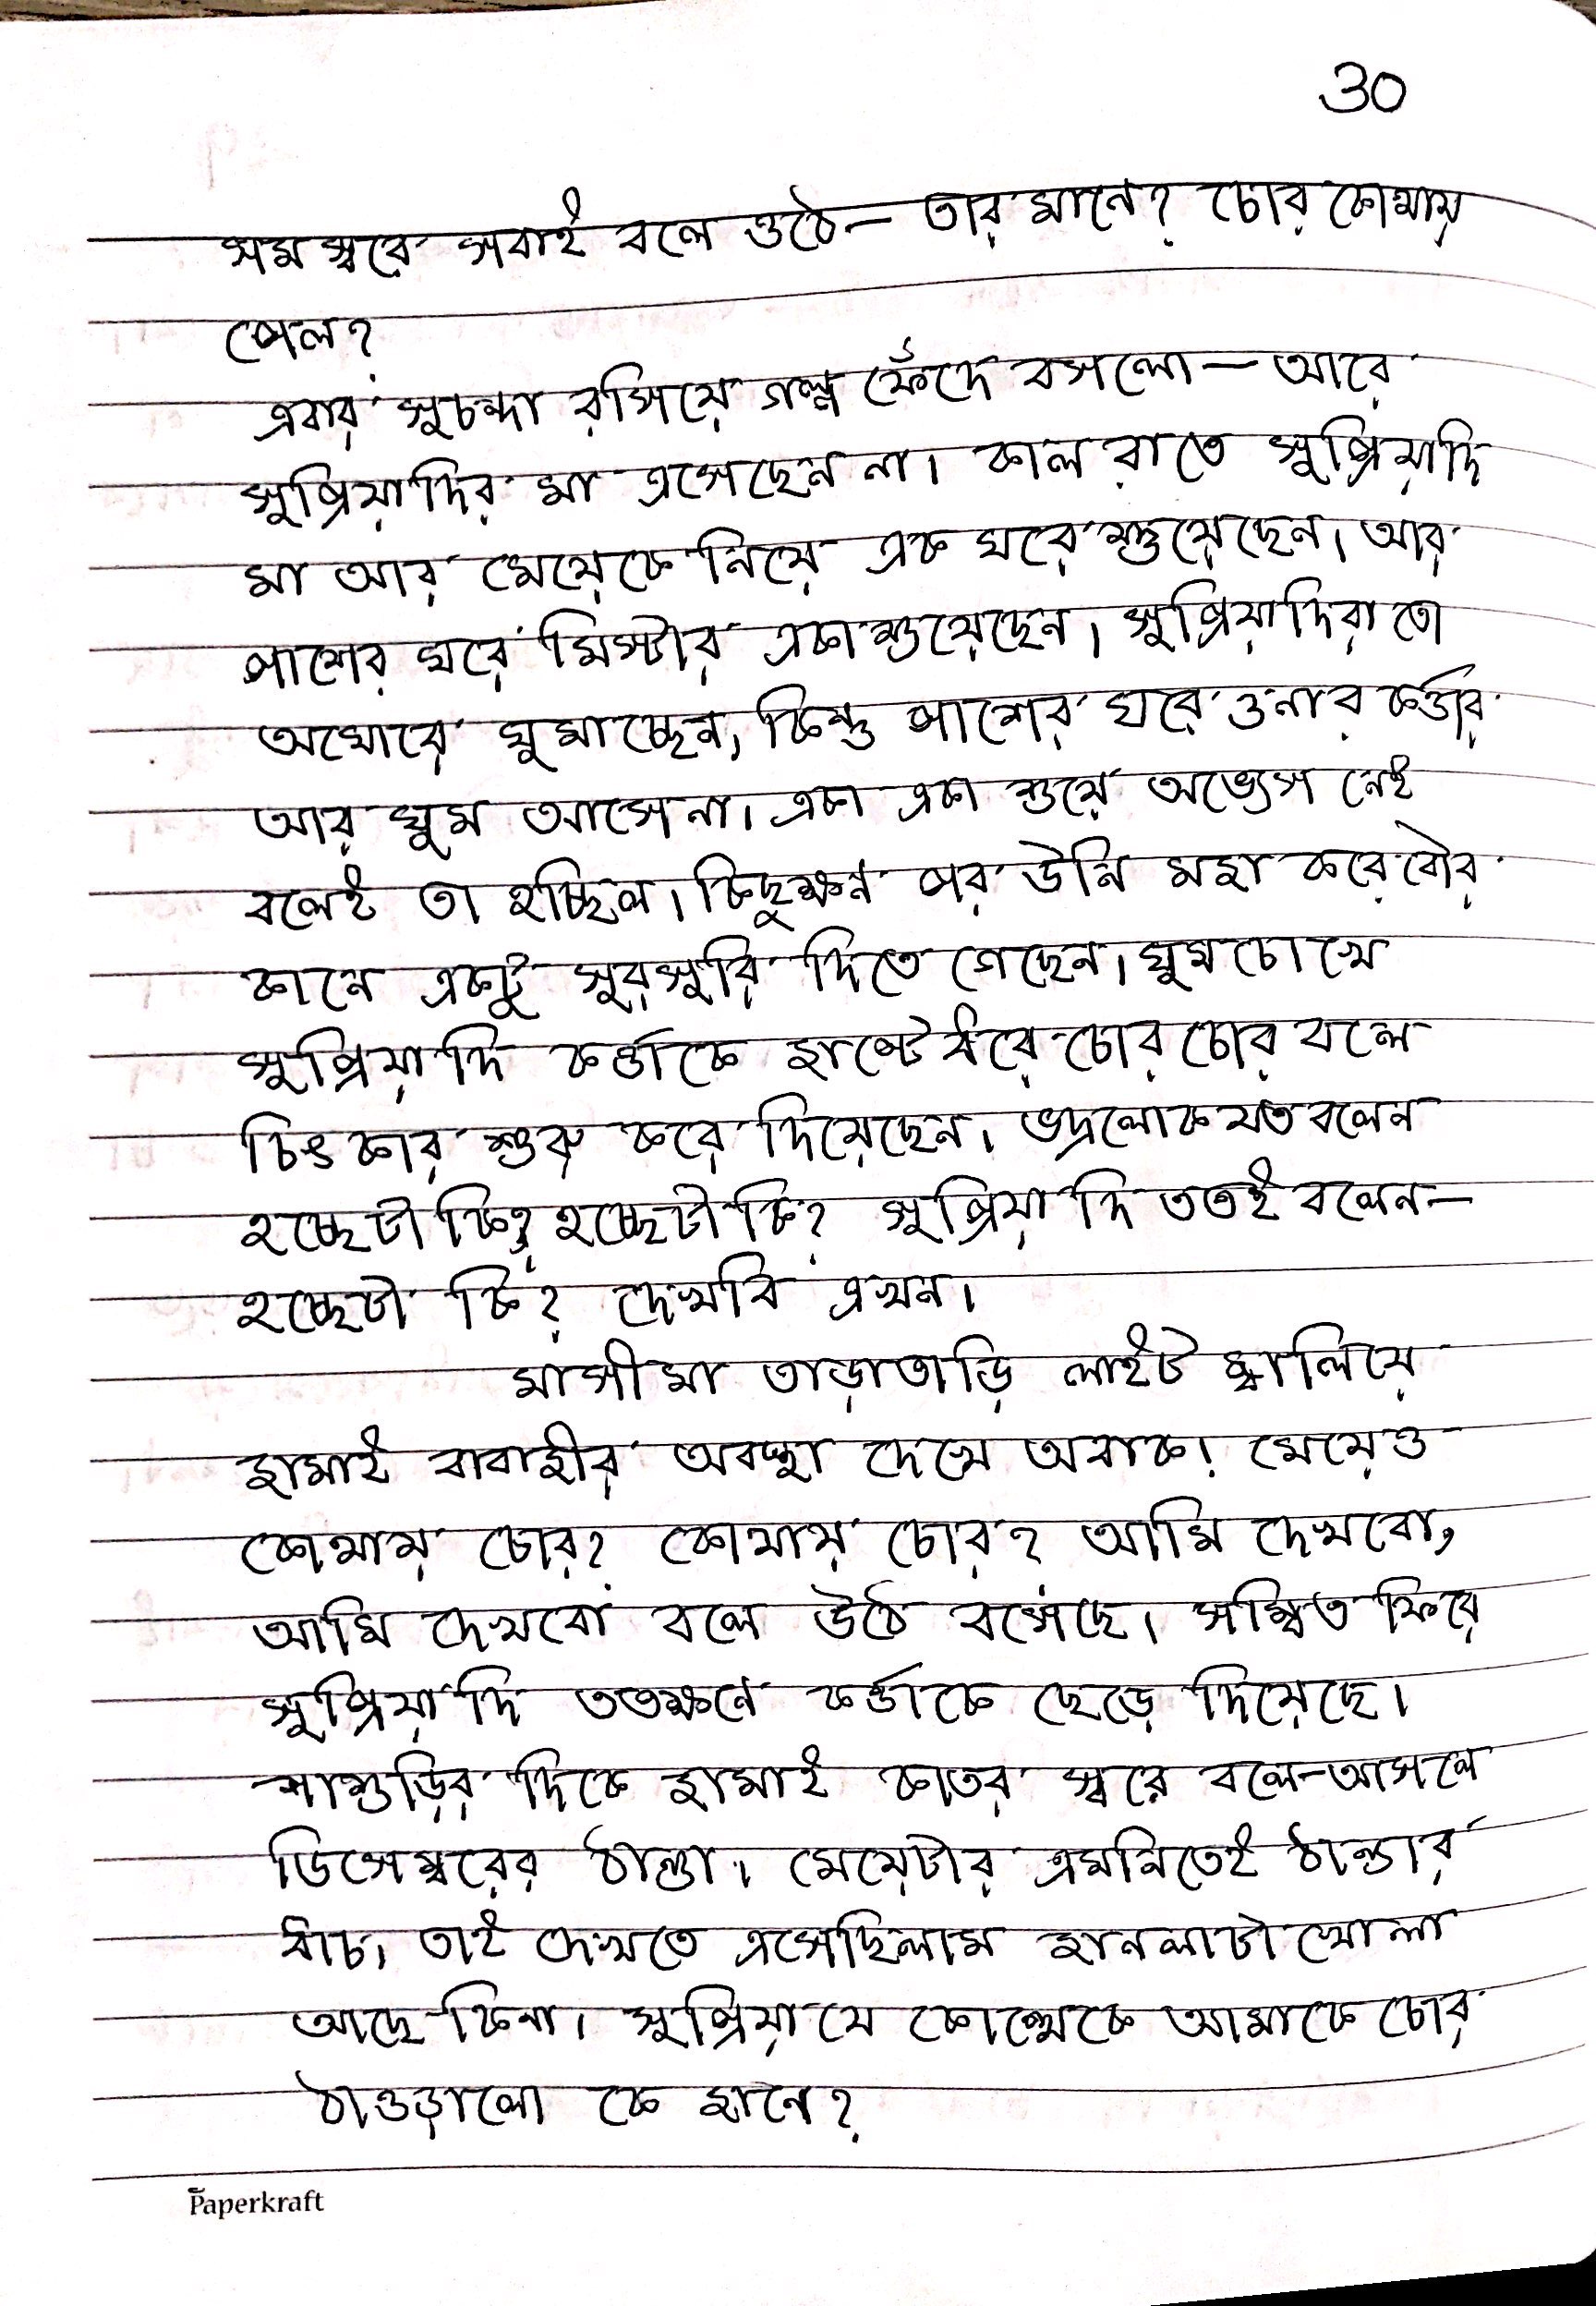 ৩০
সমস্বরে সবাই বলে ওঠে— তার মানে? চোর কোথায়
গেল?
এবার সুচন্দা রসিয়ে গল্প ফেঁদে বসলো— আরে
সুপ্রিয়াদির মা এসেছেন না। কাল রাতে সুপ্রিয়াদি
মা আর মেয়েকে নিয়ে এক ঘরে শুয়েছেন। আর
পাশের ঘরে মিস্টার একা শুয়েছেন। সুপ্রিয়াদিরা তো
অঘোরে ঘুমাচ্ছেন, কিন্তু পাশের ঘরে ওনার কর্ত্তার
আর ঘুম আসেনা। একা একা শুয়ে অভ্যেস নেই
বলেই তা হচ্ছিল। কিছুক্ষন পর উনি মজা করে বৌর
কানে একটু সুরসুরি দিতে গেছেন। ঘুমচোখে
সুপ্রিয়াদি কর্ত্তাকে জাপ্টে ধরে চোর চোর বলে
চিৎকার শুরু করে দিয়েছেন। ভদ্রলোক যত বলেন
হচ্ছেটা কি? হচ্ছেটা কি? সুপ্রিয়াদি ততই বলেন—
হচ্ছেটা কি? দেখবি এখন।
মাসীমা তাড়াতাড়ি লাইট জ্বালিয়ে
জামাই বাবাজীর অবস্থা দেখে অবাক। মেয়েও
কোথায় চোর? কোথায় চোর? আমি দেখবো,
আমি দেখবো বলে উঠে বসেছে। সম্বিত ফিরে
সুপ্রিয়াদি ততক্ষনে কর্ত্তাকে ছেড়ে দিয়েছে।
শাশুড়ির দিকে জামাই কাতর স্বরে বলে-আসলে
ডিসেম্বরের ঠান্ডা। মেয়েটার এমনিতেই ঠান্ডার
ধাচ। তাই দেখতে এসেছিলাম জানলাটা খোলা
আছে কিনা। সুপ্রিয়া যে কোত্থেকে আমাকে চোর
ঠাওড়ালো কে জানে?
Paperkraft